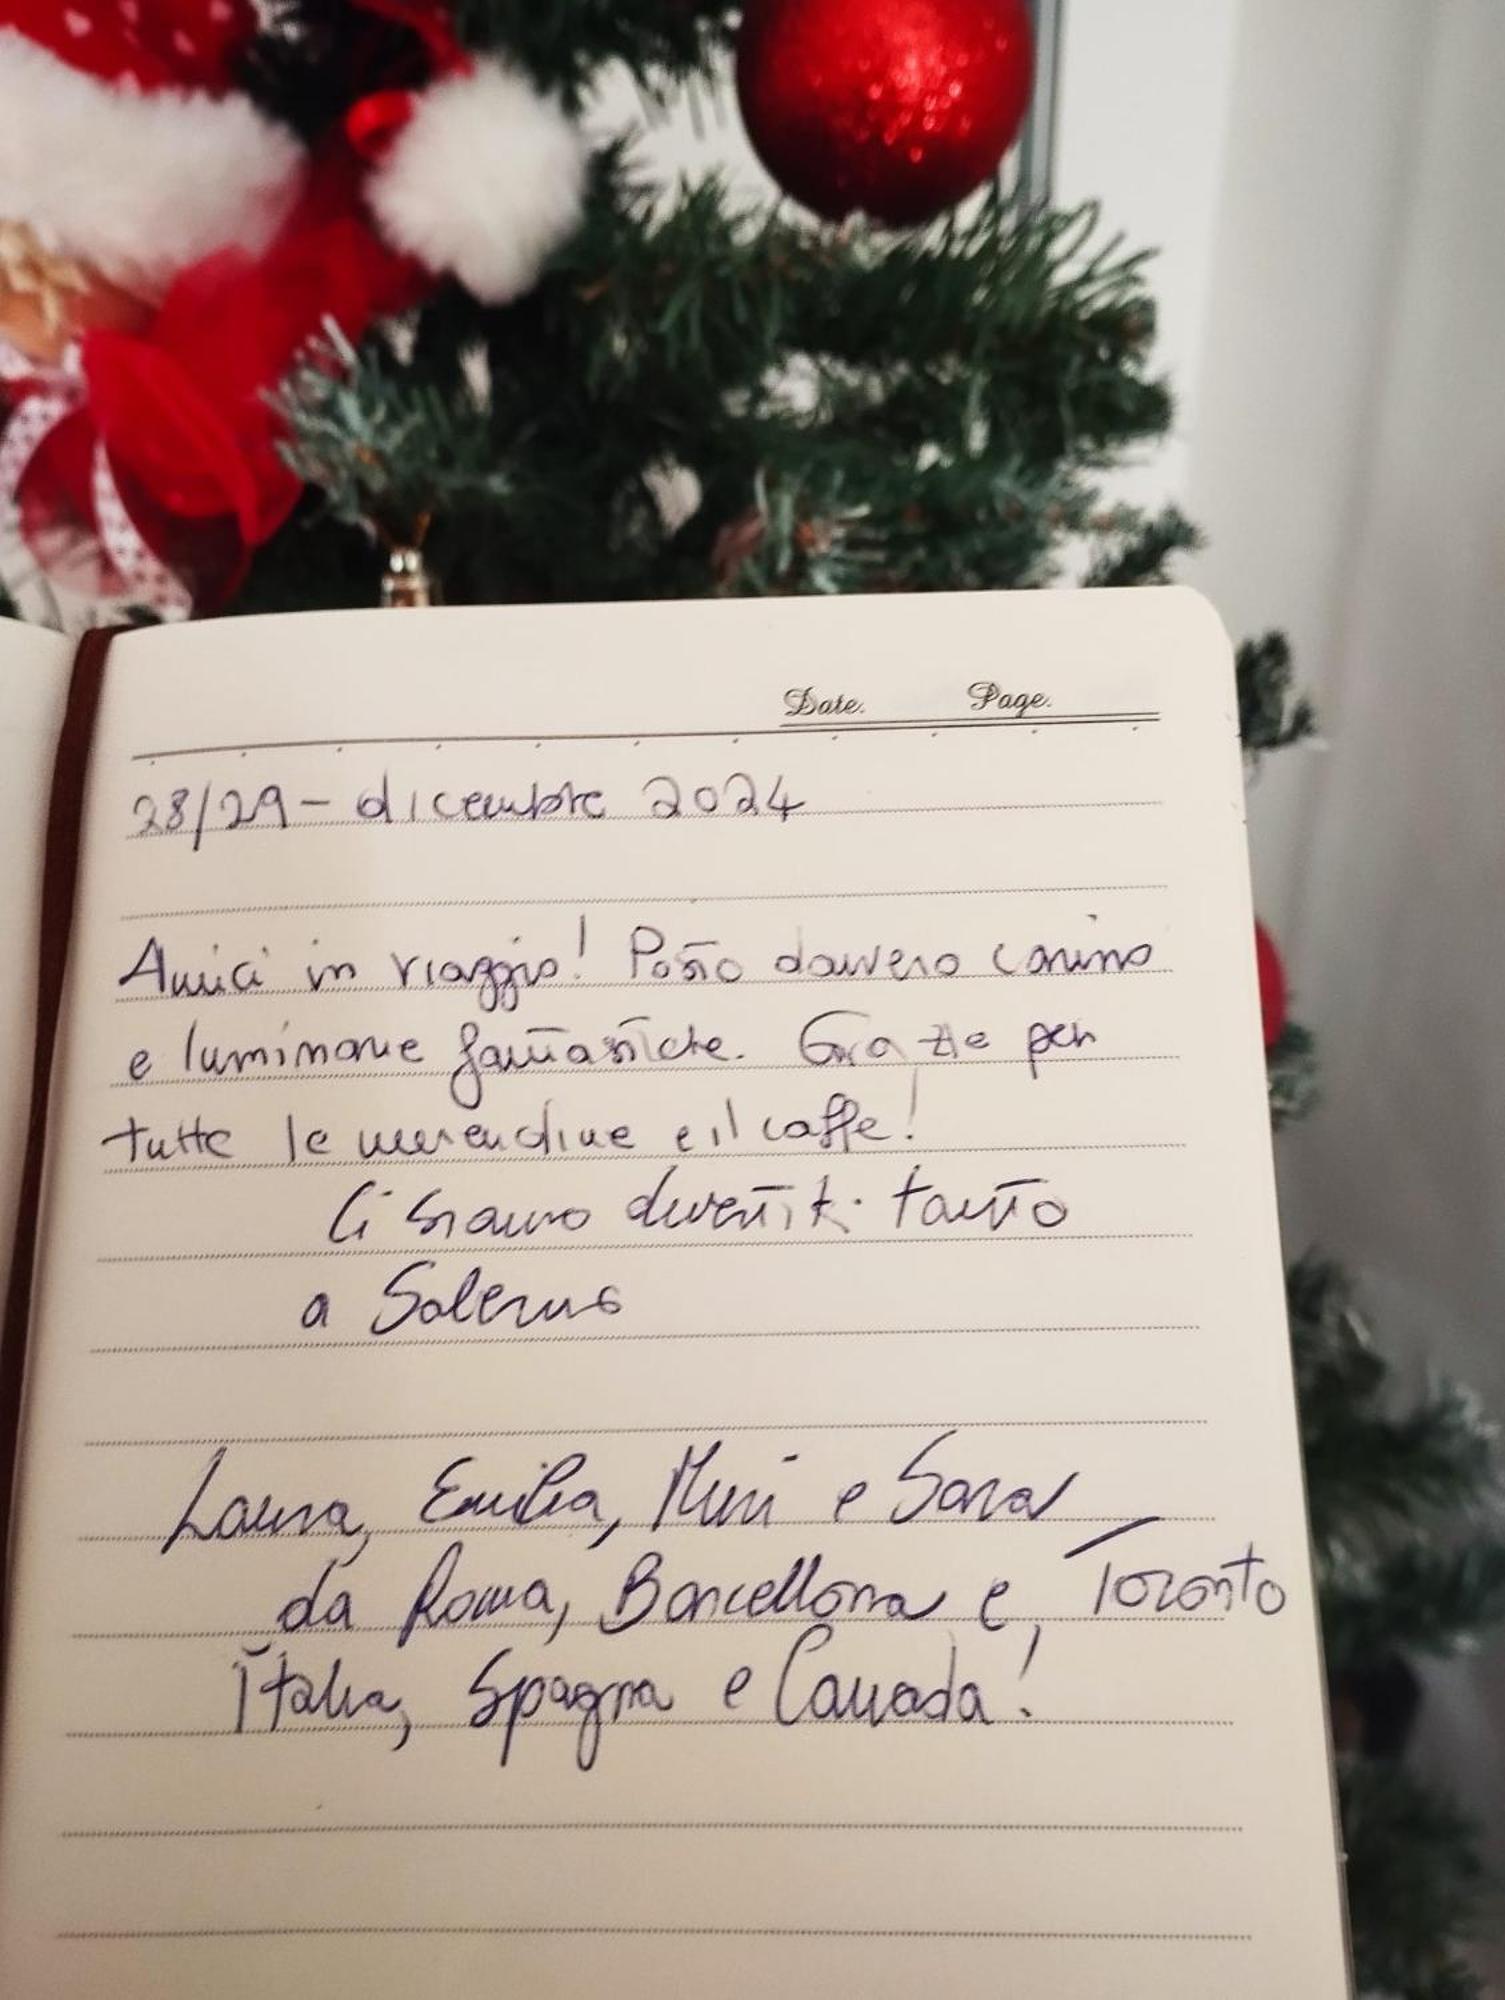 Date. Page.
28/29 - dicembre 2024
Amici in viaggio! Posto davvero carino
e luminarie fantastiche. Grazie per
tutte le merendine e il caffe!
Ci siamo divertiti tanto
a Salerno
Laura, Emilia, Miri e Sara
da Roma, Barcellona e, Toronto
Italia, Spagna e Canada!